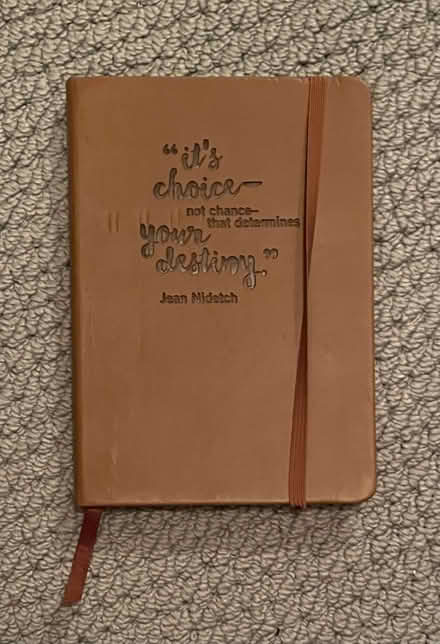 “it's
choice—
not chance—
that determines
your
destiny.”
Jean Nidetch